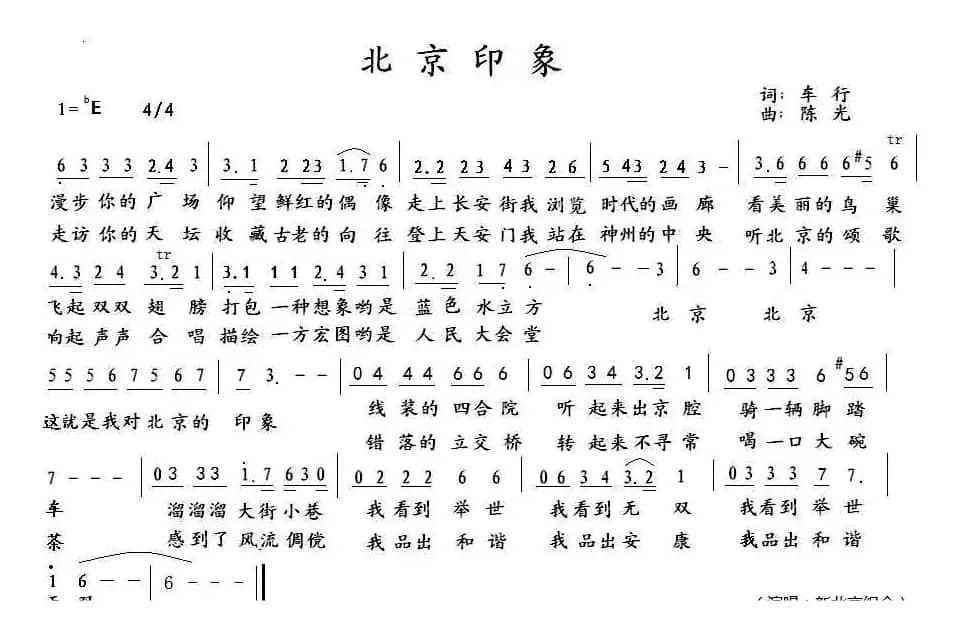 北京印象
1=ᵇE 4/4
词：车行
曲：陈光
tr
6 3 3 3 2.4 3 | 3. 1 2 23 1.7 6 | 2. 2 23 43 26 | 5 43 23 - | 3. 6 6 6 6 #5 6
漫步你的广场 仰望鲜红的偶像 走上长安街我浏览 时代的画廊 看美丽的鸟巢
走访你的天坛 收藏古老的向往 登上天安门我站在 神州的中央 听北京的颂歌
tr
4. 3 2 4 3. 2 1 | 3. 1 1 1 2. 4 3 1 | 2. 2 1 7 6 - | 6 - - 3 | 6 - - 3 | 4 - - -
飞起双双翅膀 打包一种想象哟是 蓝色水立方 北京 北京
响起声声合唱 描绘一方宏图哟是 人民大会堂
5 5 5 6 7 5 6 7 | 7 3. - - | 0 4 4 4 6 6 6 | 0 6 3 4 3. 2 1 | 0 3 3 3 6 #56
这就是我对北京的 印象 线装的四合院 听起来出京腔 骑一辆脚踏
错落的立交桥 转起来不寻常 喝一口大碗
7 - - - | 0 3 3 3 1. 7 6 3 0 | 0 2 2 2 6 6 | 0 6 3 4 3. 2 1 | 0 3 3 3 7 7.
车 溜溜溜大街小巷 我看到举世 我看到无双 我看到举世
茶 感到了风流倜傥 我品出和谐 我品出安康 我品出和谐
1 6 - - | 6 - - ‖